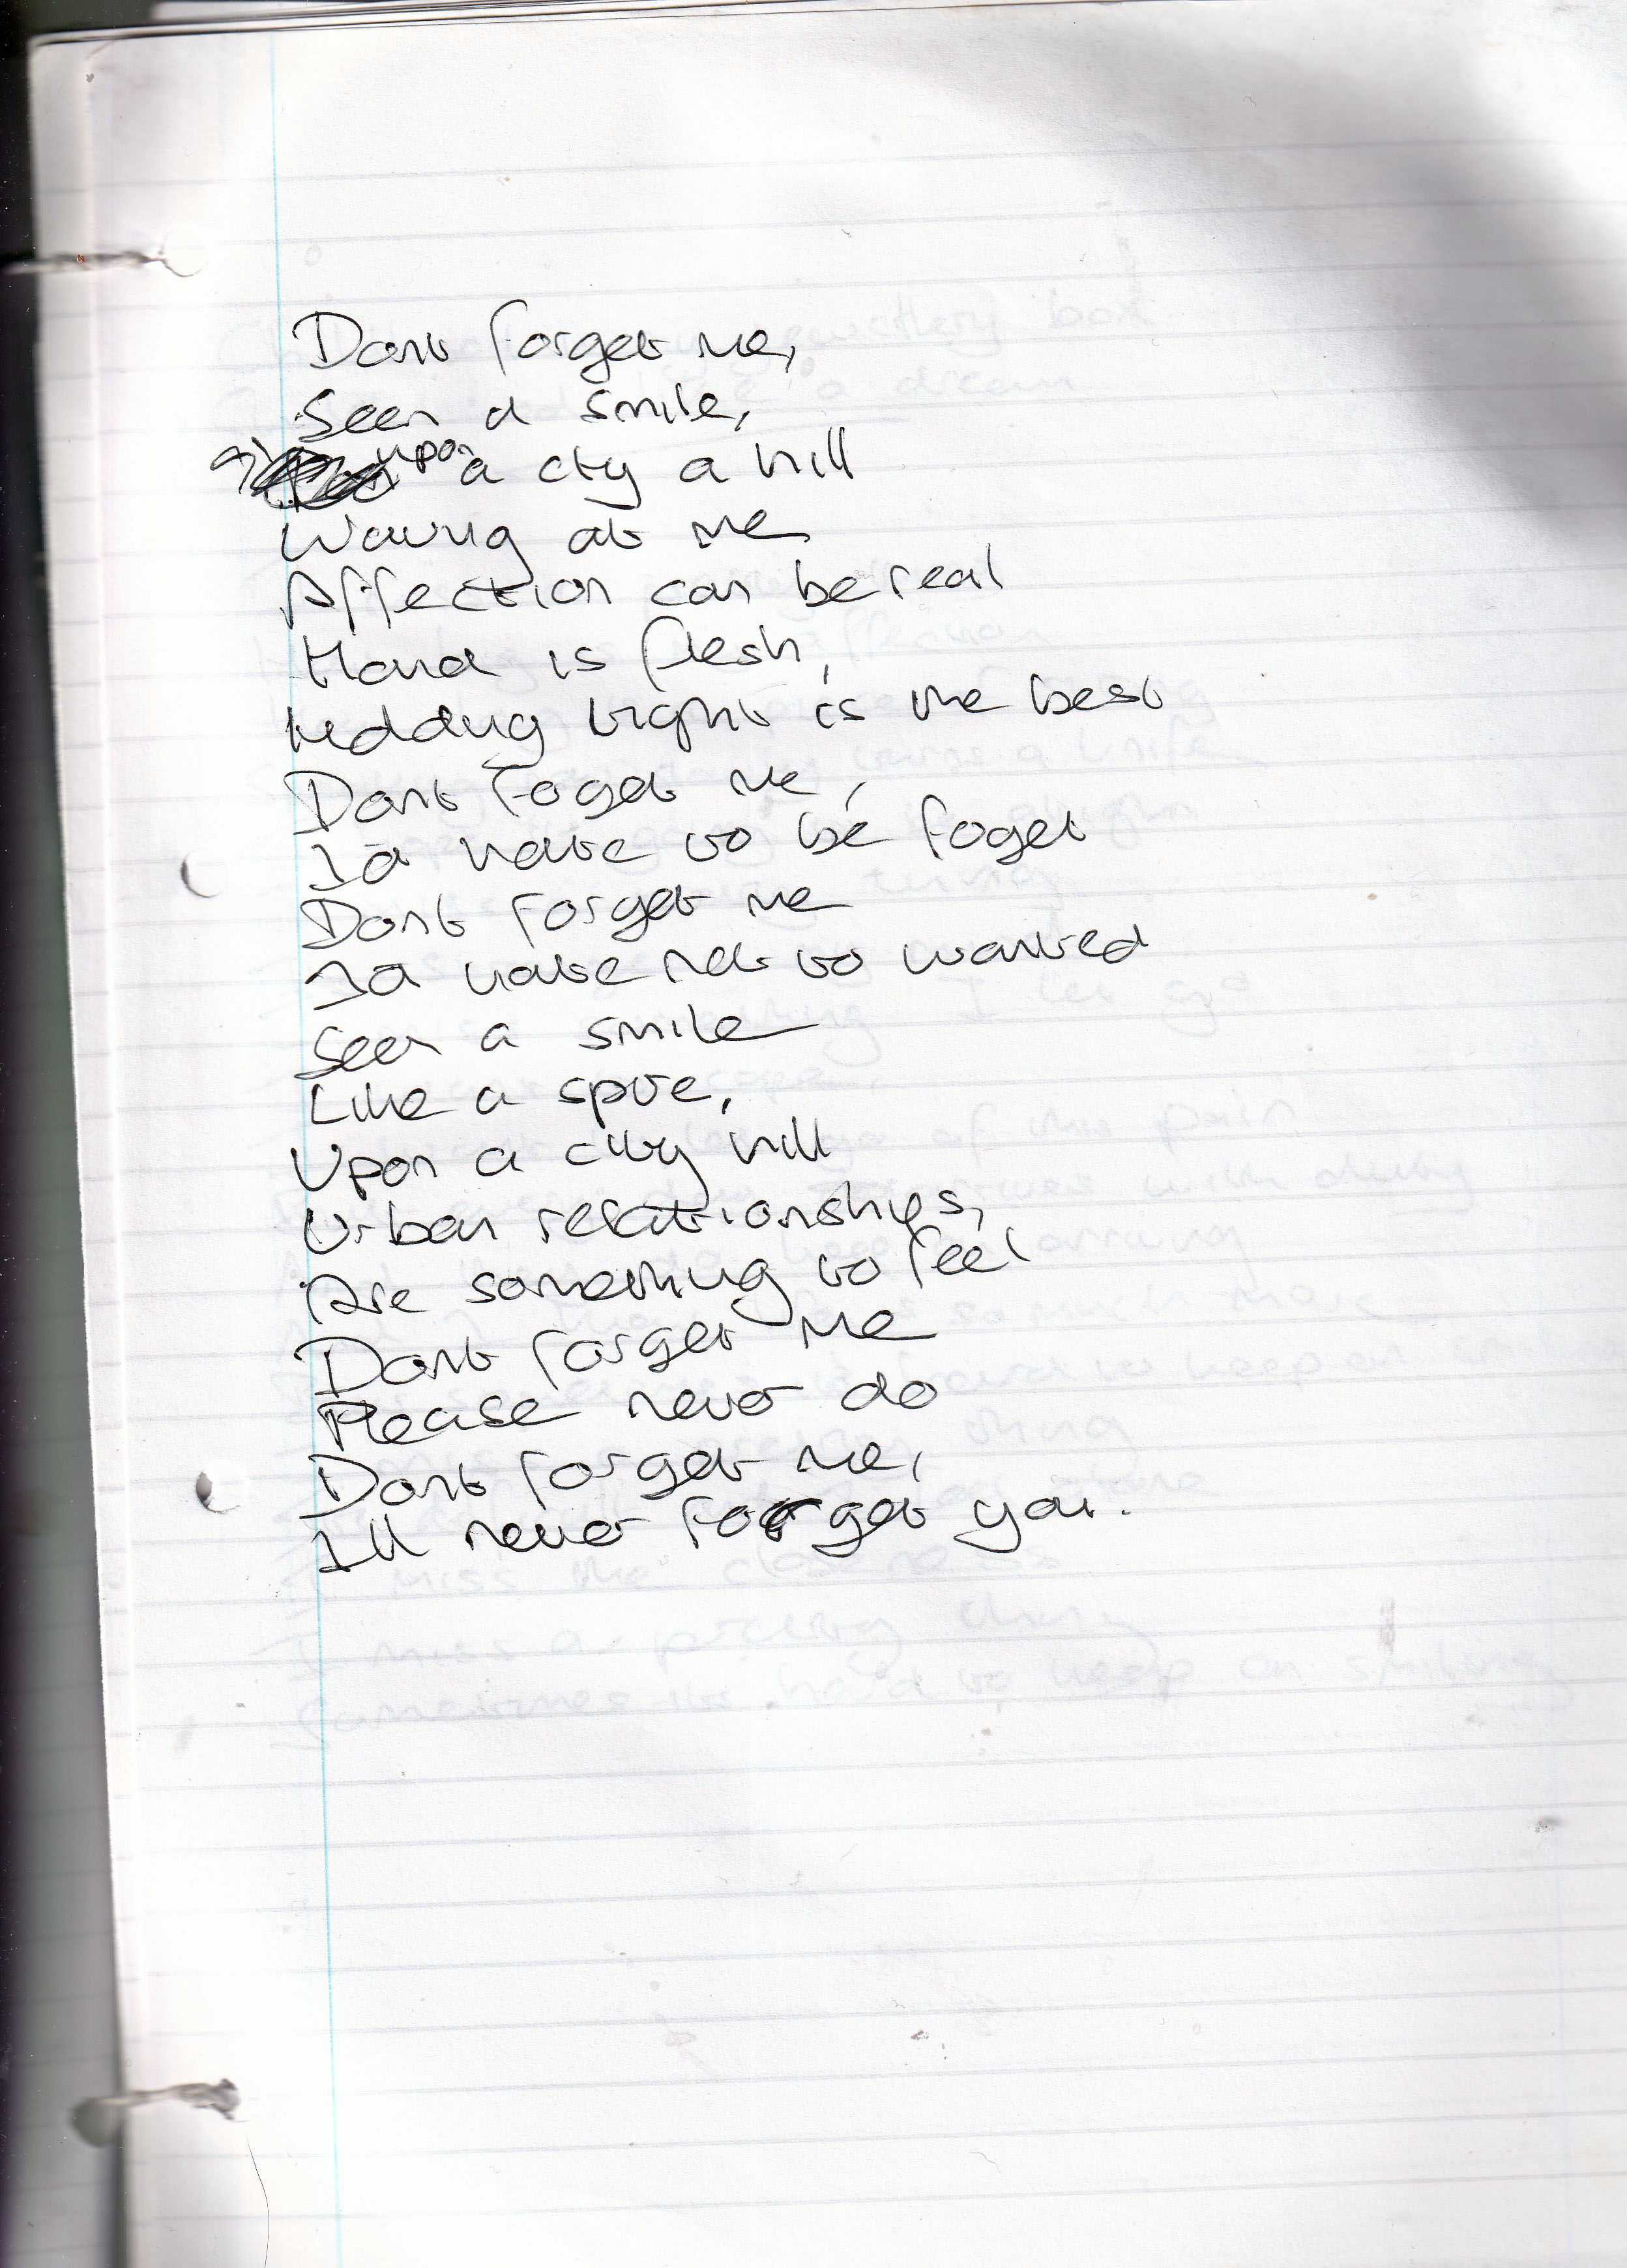 Dont forget me,
Seen a smile,
upon a city a hill
Waving at me
Affection can be real
Hand is flesh,
Holding tight is the best
Dont foget me,
Id hate to be foget
Dont forget me
Id hate not to wanted
Seen a smile
Like a spire,
Upon a city hill
Urban relationships,
Are something to feel
Dont forget me
Please never do
Dont forget me,
Ill never forget you.